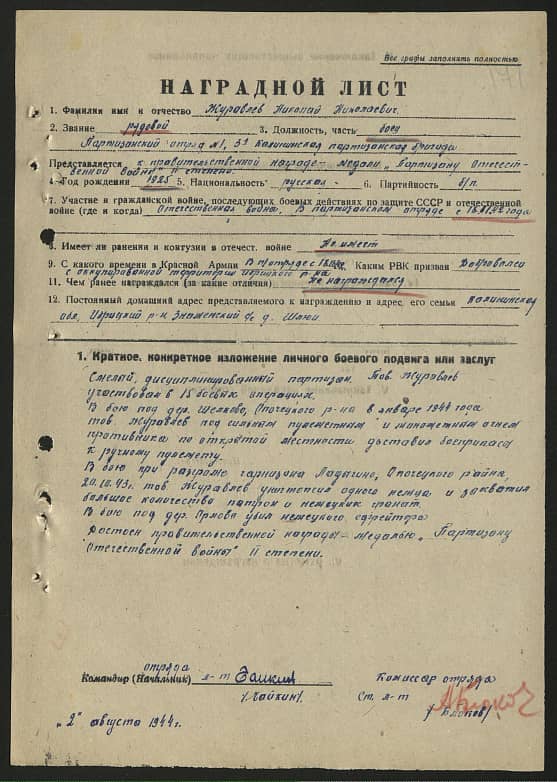 Все графы заполнять полностью
НАГРАДНОЙ ЛИСТ
1. Фамилия имя и отчество Журавлев Николай Николаевич.
2. Звание рядовой 3. Должность, часть боец
Партизанский отряд №1, 5я Калининская партизанская бригада
Представляется к правительственной награде – медали „Партизану Отечест-
венной Войны" II степени.
4. Год рождения 1925 5. Национальность русская. 6. Партийность б/п.
7. Участие в гражданской войне, последующих боевых действиях по защите СССР и отечественной
войне (где и когда) Отечественная война, В партизанском отряде с 1942 года
8. Имеет ли ранения и контузии в отечест. войне Не имеет
9. С какого времени в Красной Армии В п/отряде с Каким РВК призван Добровольно
с оккупированной территории Идрицкого р-на
11. Чем ранее награждался (за какие отличия) Не награждался
12. Постоянный домашний адрес представляемого к награждению и адрес, его семьи Калининская
обл. Идрицкий р-н Знаменский с/с д.
1. Краткое, конкретное изложение личного боевого подвига или заслуг
Смелый, дисциплинированный партизан. Тов. Журавлев
участвовал в 15 боевых операциях.
В бою под дер. Шелково, Опочецкого р-на в январе 1944 года
тов. Журавлев под сильным пулеметным и минометным огнем
противника по открытой местности доставил боеприпасы
к ручному пулемету.
В бою при разгроме гарнизона Ладыгино, Опочецкого района,
20.10.43г. тов Журавлев уничтожил одного немца и захватил
большое количество патрон и немецких гранат.
В бою под дер. Орлова убил немецкого ефрейтора.
Достоин правительственной награды – медалью „Партизану
Отечественной Войны" II степени.
отряда
Командир (Начальник) л-т
/Чайкин/
Комиссар отряда
Ст. л-т
/Блохов/
„2" августа 1944г.